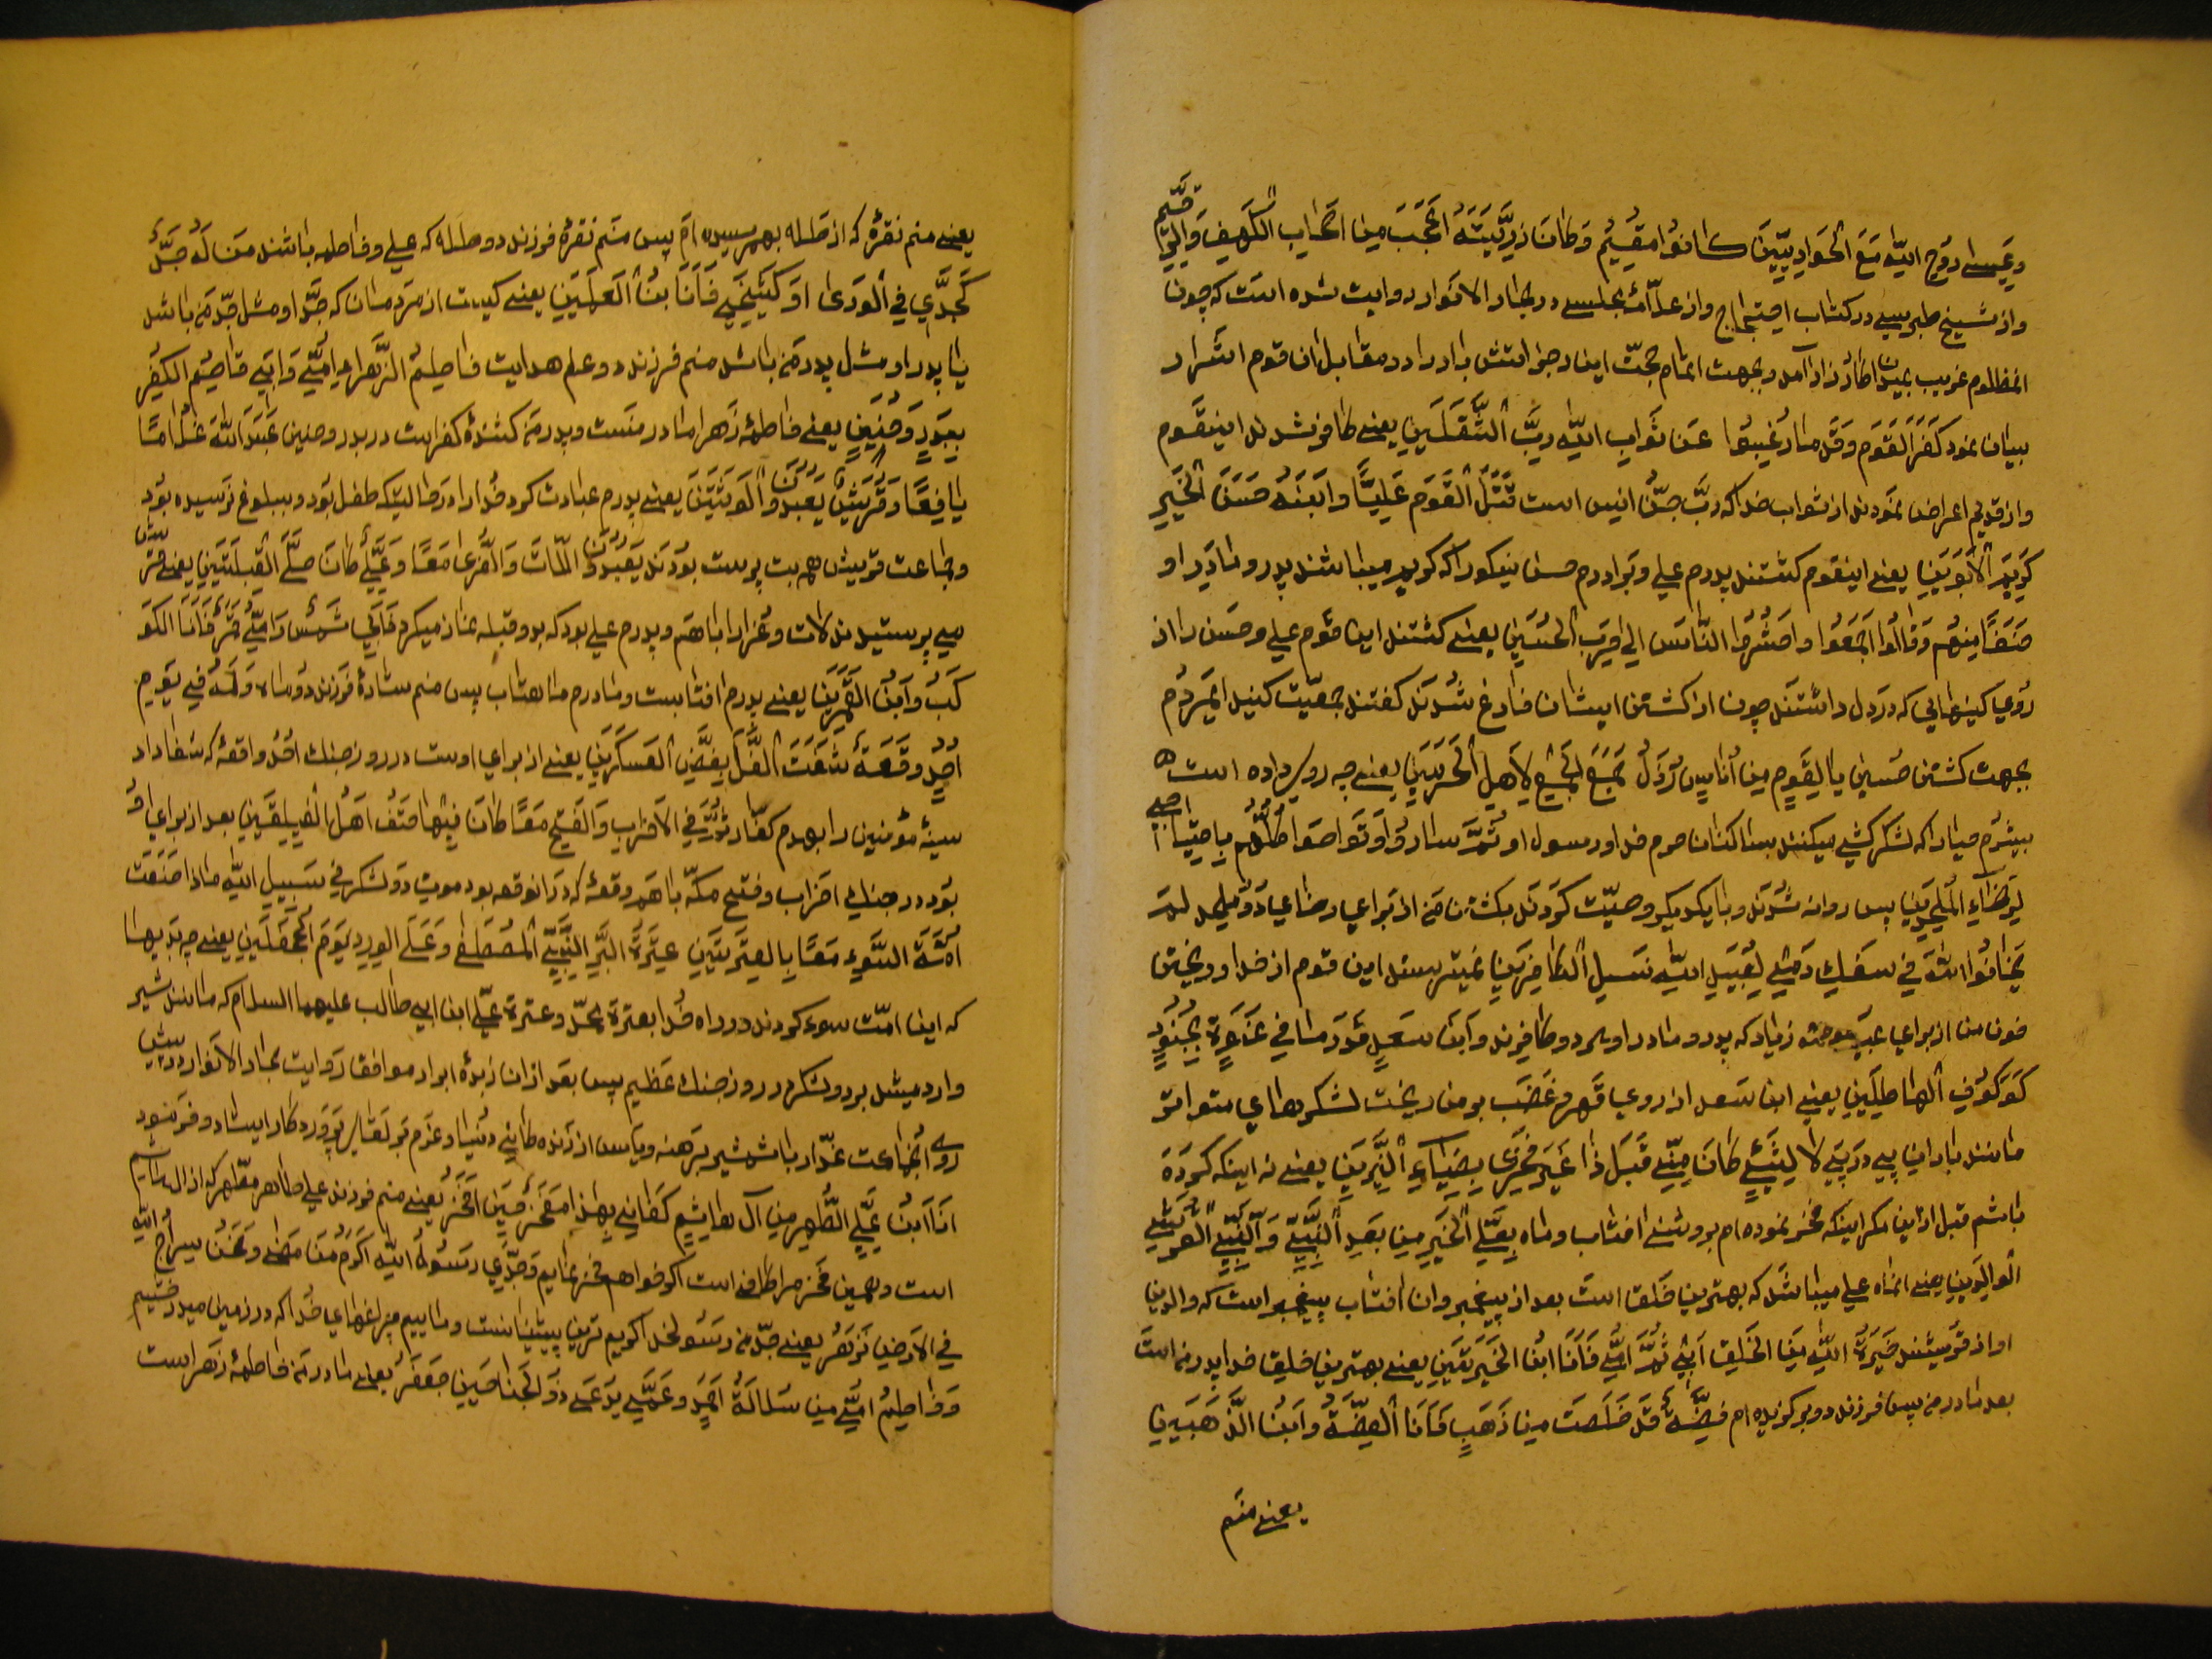 وعیسی روح اللّه مع الحواریین کانوا مقیم وکان زریته اعجب من اصحاب الکهف والرقیم
واز شیخ طبرسی در کتاب احتجاج واز علامهٔ مجلسی در بحار الانوار روایت شده است که چون
انمظلوم غریب بمیدان کارزار آمد وبجهت اتمام حجّت این رجز اتش بار را در مقابل ان قوم اشرار
بیان نمود کَفَرَ القَوْمُ وَقِدْما رَغِبوا عَن ثَوابِ اللّهِ رَبِّ الثَّقَلَینِ یعنی کافر شدند اینقوم
واز قدیم اعراض نمودند از ثواب خدا که ربّ جنّ انیس است قَتَلَ القَوْمُ عَلِیًّا وَابْنَهُ حَسَنَ الخَیْرِ
کَرِیمَ الاَبَوَیْنِ یعنی اینقوم کشتند پدرم علی وبرادرم حسن نیکورا که کریم میباشند پدر ومادر او
حَنَقًا مِنْهُم وَقالُوا اجْمَعُوا واحْشُرُوا النّاسَ اِلی حَرْبِ الحُسَیْنِ یعنی کشتند این قوم علی وحسن را از
روی کینهائی که در دل داشتند چون از کشتن ایشان فارغ شدند گفتند جمعیّت کنید ایمردُم
بجهت کشتن حسین یا لِقَوْمٍ مِنْ اُناسٍ رُذَّلٍ جَمَعَ الجَمْعَ لِاَهْلِ الحَرَمَیْنِ یعنی چه روی داده است
بیشرم میارا که لشکرکشی میکنند بساکنان حرم خدا ورسول او ثُمَّ سارُوا وَتَواصَوا کُلُّهُم بِاجْتِیاحی
لِرِضاءِ المُلْحِدَیْنِ پس روانه شدند وبا یکدیگر وصیّت کردند بکشتن من از برای رضای دو ملحد لَمْ
یَخافُوا اللّهَ فی سَفْکِ دَمی لِعُبَیْدِ اللّهِ نَسْلِ الکافِرَیْنِ نمیترسند این قوم از خدا در ریختن
خون من از برای عبید زیاد که پدر ومادر او هر دو کافرند وابْنُ سَعْدٍ قَدْ رَمانی عَنْوَةً بِجُنُودٍ
کَوُکُوفِ الهاطِلَینِ یعنی ابن سعد از روی قهر وغضب بر من ریخت لشکرهای متواتر
مانند باران پی در پی لا لِشَیْءٍ کانَ مِنّی قَبْلَ ذا غَیْرَ فَخْری بِضِیاءِ النَّیِّرَیْنِ یعنی نه اینکه کرده
باشم قبل ازین مکر اینکه فخر نموده ام بروشنی افتاب وماه بِعَلیِّ الخَیْرِ مِن بَعْدِ النَّبیِّ وَالنَّبیِّ القُرَشیِّ
الوالِدَینِ یعنی انماه علی میباشد که بهترین خلق است بعد از پیغمبر وان افتاب پیغمبر است که والدین
او از قریشند خِیَرَةُ اللّهِ مِنَ الخَلْقِ اَبی ثُمَّ اُمّی فَاَنَا ابْنُ الخِیَرَتَیْنِ یعنی بهترین خلق خدا پدر من است
بعد مادر من پس فرزند دو برکزیده ام فِضَّةٌ قَدْ خَلَصَت مِن ذَهَبٍ فَاَنَا الفِضَّةُ وابْنُ الذَّهَبَینِ
یعنی منم
یعنی منم نقرهٔ که از طله بهم رسیده ام پس منم نقرهٔ فرزند دو طله که علی وفاطمه باشند مَن لَهُ جَدٌّ
کَجَدّی فِی الوَری اَو کَشَیْخی فَاَنَا بْنُ العَلَمَیْنِ یعنی کیست از مردمان که جدّ او مثل جدّ من باشد
یا پدر او مثل پدر من باشد منم فرزند دو علم هدایت فاطِمُ الزَّهراءِ اُمّی وَاَبی قاصِمُ الکُفْرِ
بِبَدْرٍ وَحُنَیْنٍ یعنی فاطمهٔ زهرا مادر منست وپدر من کشندهٔ کفر است در بدر وحنین عَبَدَ اللّهَ غُلامًا
یافِعًا وَقُرَیْشٌ یَعْبُدُونَ الوَثَنَیْنِ یعنی پدرم عبادت کرد خدا را در حالیتکه طفل بود وببلوغ نرسیده بود
وجماعت قریش همه بت پرست بودند یَعْبُدُونَ اللّاتَ وَالعُزّی مَعًا وَعَلیٌّ کانَ صَلَّی القِبْلَتَیْنِ یعنی قریش
می پرستیدند لات وعزّا را باهم وپدرم علی بود که بدو قبله نماز میکرد فَاَبی شَمْسٌ وَاُمّی قَمَرٌ فَاَنَا الکَوْ
کَبُ وَابْنُ القَمَرَیْنِ یعنی پدرم افتابست ومادرم ماهتاب پس منم ستارهٔ فرزند دو ماه وَلَهُ فی یَوْمِ
اُحْدٍ وَقْعَةٌ شَفَتِ الغِلَّ بِفَضِّ العَسْکَرَیْنِ یعنی از برای اوست در روز جنک اُحُد واقعهٔ که شفا داد
سینهٔ مؤمنین را بهدم کفّار ثُمَّ فِی الاَحْزابِ وَالفَتْحِ مَعًا کانَ فیها حَتْفُ اَهْلِ الفَیْلَقَیْنِ بعد از برای او
بود در جنک احزاب وفتح مکّه باهم وقعهٔ که در انوقعه بود موت دو لشکر فی سَبیلِ اللّهِ ماذا صَنَعَت
اُمَّةُ السَّوْءِ مَعًا بِالعِتْرَتَیْنِ عِتْرَةِ البَرِّ النَّبیِّ المُصْطَفی وَعَلیِّ الوَرْدِ یَوْمَ الجَحْفَلَیْنِ یعنی چه بدیها
که این امّت سوء کردند در راه خدا بعترة محمّد وعترة علیّ ابن ابی طالب علیهما السلام که مانند شیر
وارد میشد بر دو لشکر در روز جنک عظیم پس بعد ازان زبدهٔ ابرار موافق روایت بحار الانوار در پیش
روی انجماعت غدّار با شمشیر برهنه ویأس از زنده کانی دنیا وعزم بر لقای پروردکار ایستاد وفرمود
اَنَا ابْنُ عَلیِّ الطُّهْرِ مِن آلِ هاشِمٍ کَفانی بِهذا مَفْخَرًا حینَ اَفْخَرُ یعنی منم فرزند علی طاهر مطّهر که از ال هاشم
است وهمین فخر مرا کافی است اکر خواهم فخر نمایم وَجَدّی رَسُولُ اللّهِ اَکْرَمُ مَن مَضی وَنَحْنُ سِراجُ اللّهِ
فِی الاَرْضِ نَزْهَرُ یعنی جدّ من رسولخدا کریم ترین پیشینانست ومائیم چراغهای خدا که در زمین میدرخشیم
وَفاطِمُ اُمّی مِن سُلالَةِ اَحْمَدٍ وعَمّی یُدْعی ذوَالجَناحَیْنِ جَعْفَرُ یعنی مادر من فاطمهٔ زهراست